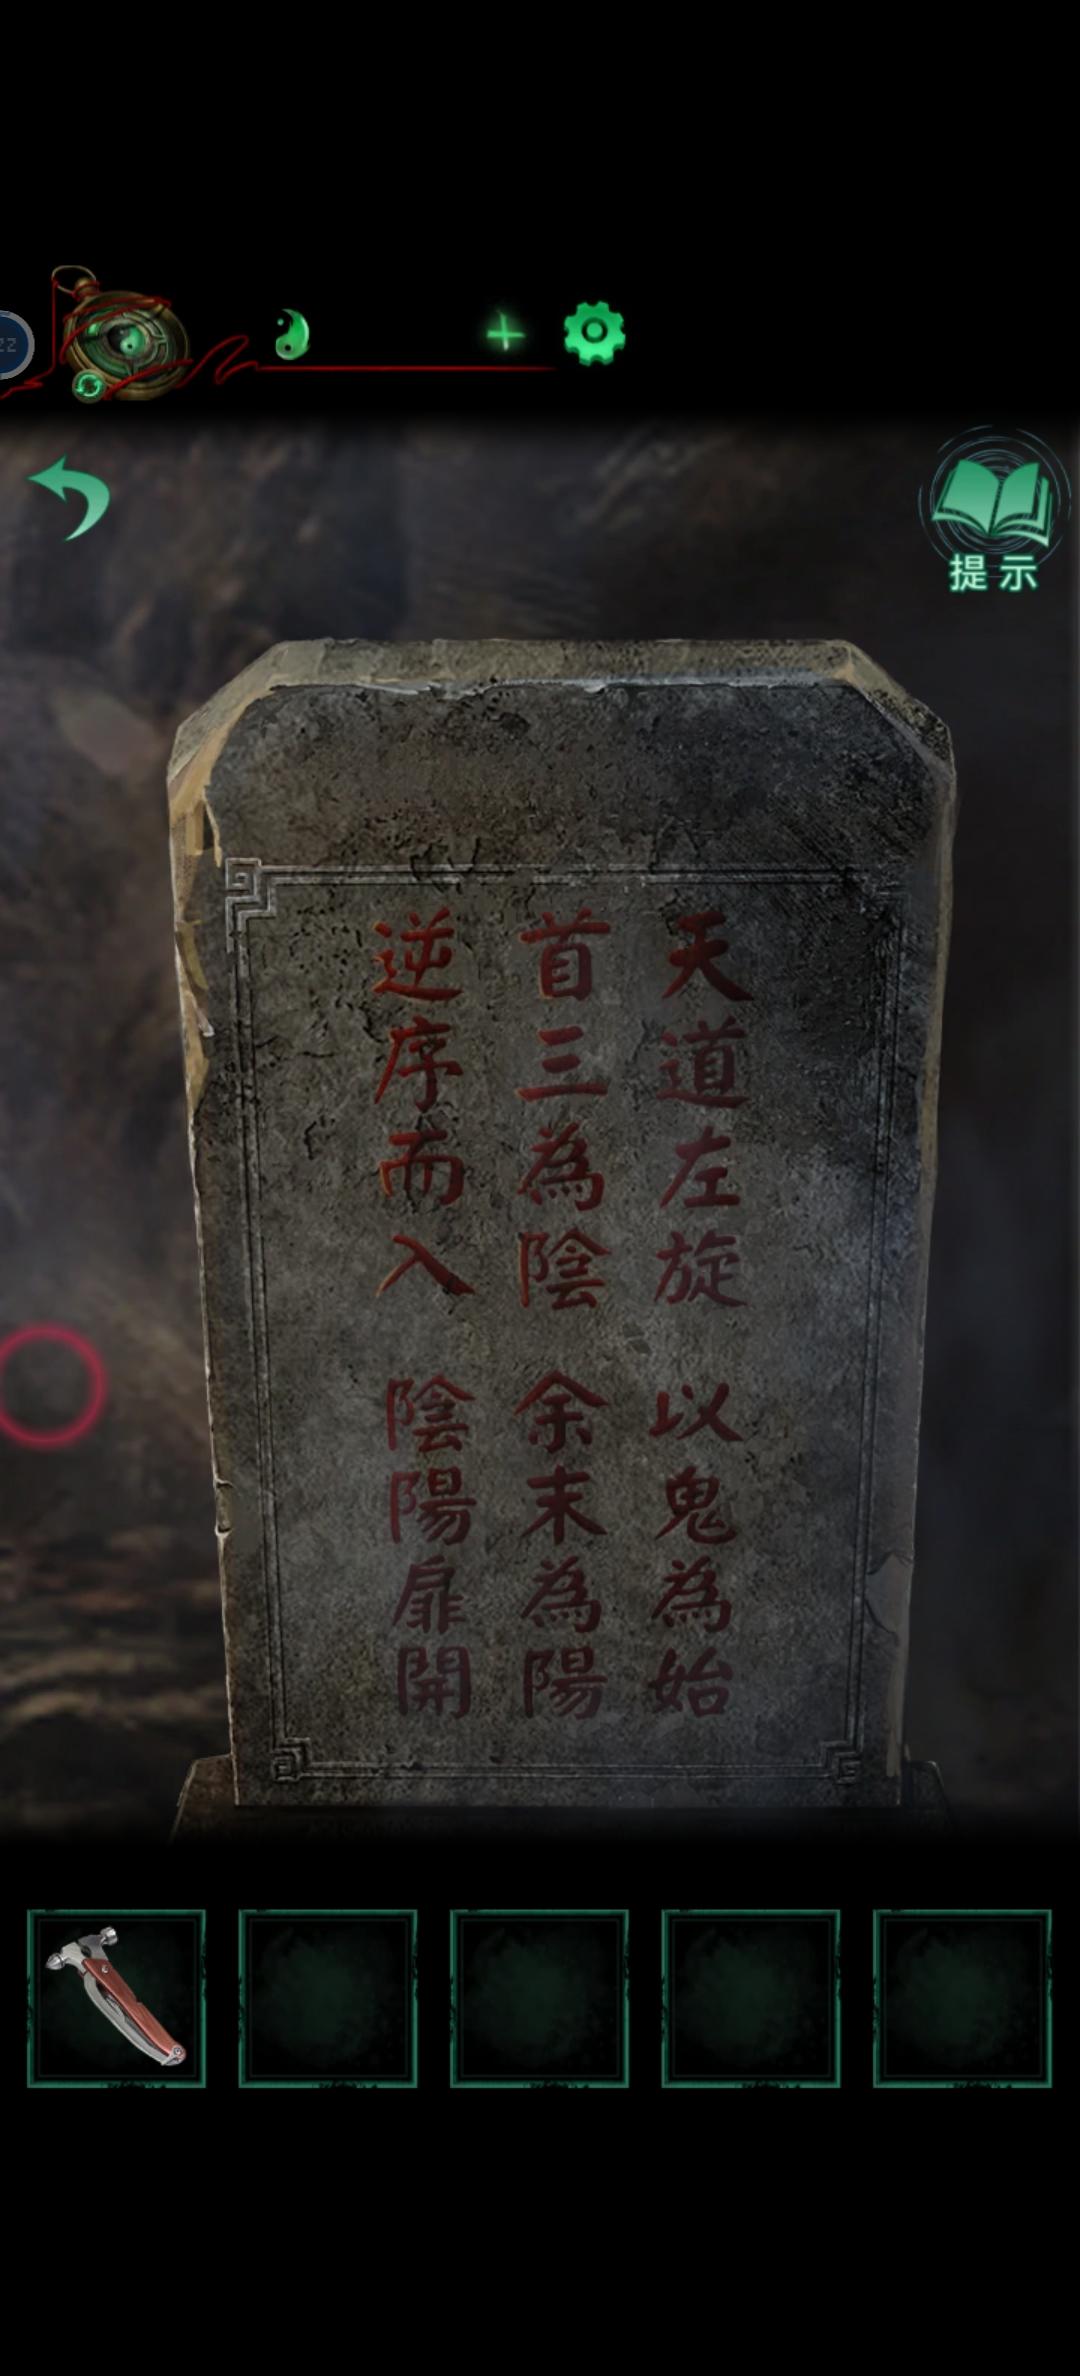 提示
天道左旋 以鬼為始
首三為陰 余末為陽
逆序而入 陰陽扉開